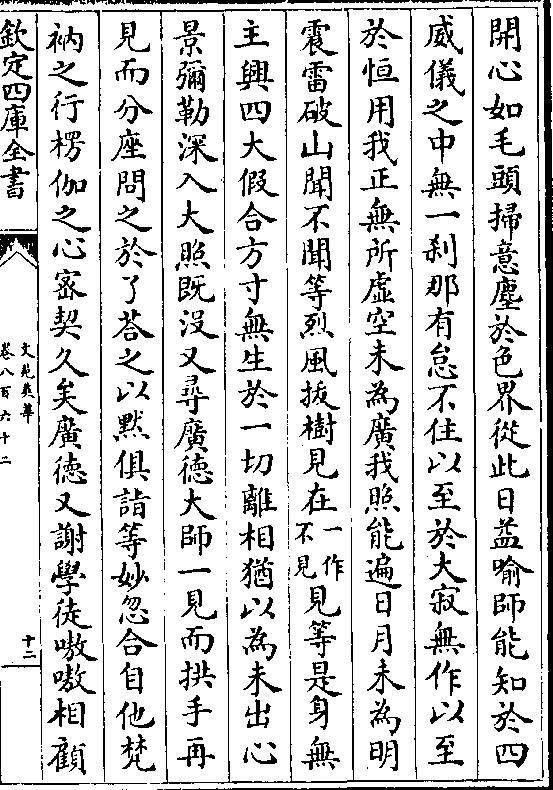 開心如毛頭掃意塵於色界從此日益喻師能知於四
威儀之中無一刹那有怠不住以至於大寂無作以至
於恒用我正無所虛空未為廣我照能遍日月未為明
震雷破山聞不聞等烈風拔樹見在一作不見見等是身無
主興四大假合方寸無生於一切離相猶以為未出心
景彌勒深入大照既沒又尋廣德大師一見而拱手再
見而分座問之於了荅之以默俱詣等妙忽合自他梵
衲之行楞伽之心密契久矣廣徳又謝學徒嗷嗷相顧
欽定四庫全書
文苑英華
卷八百六十二
十二